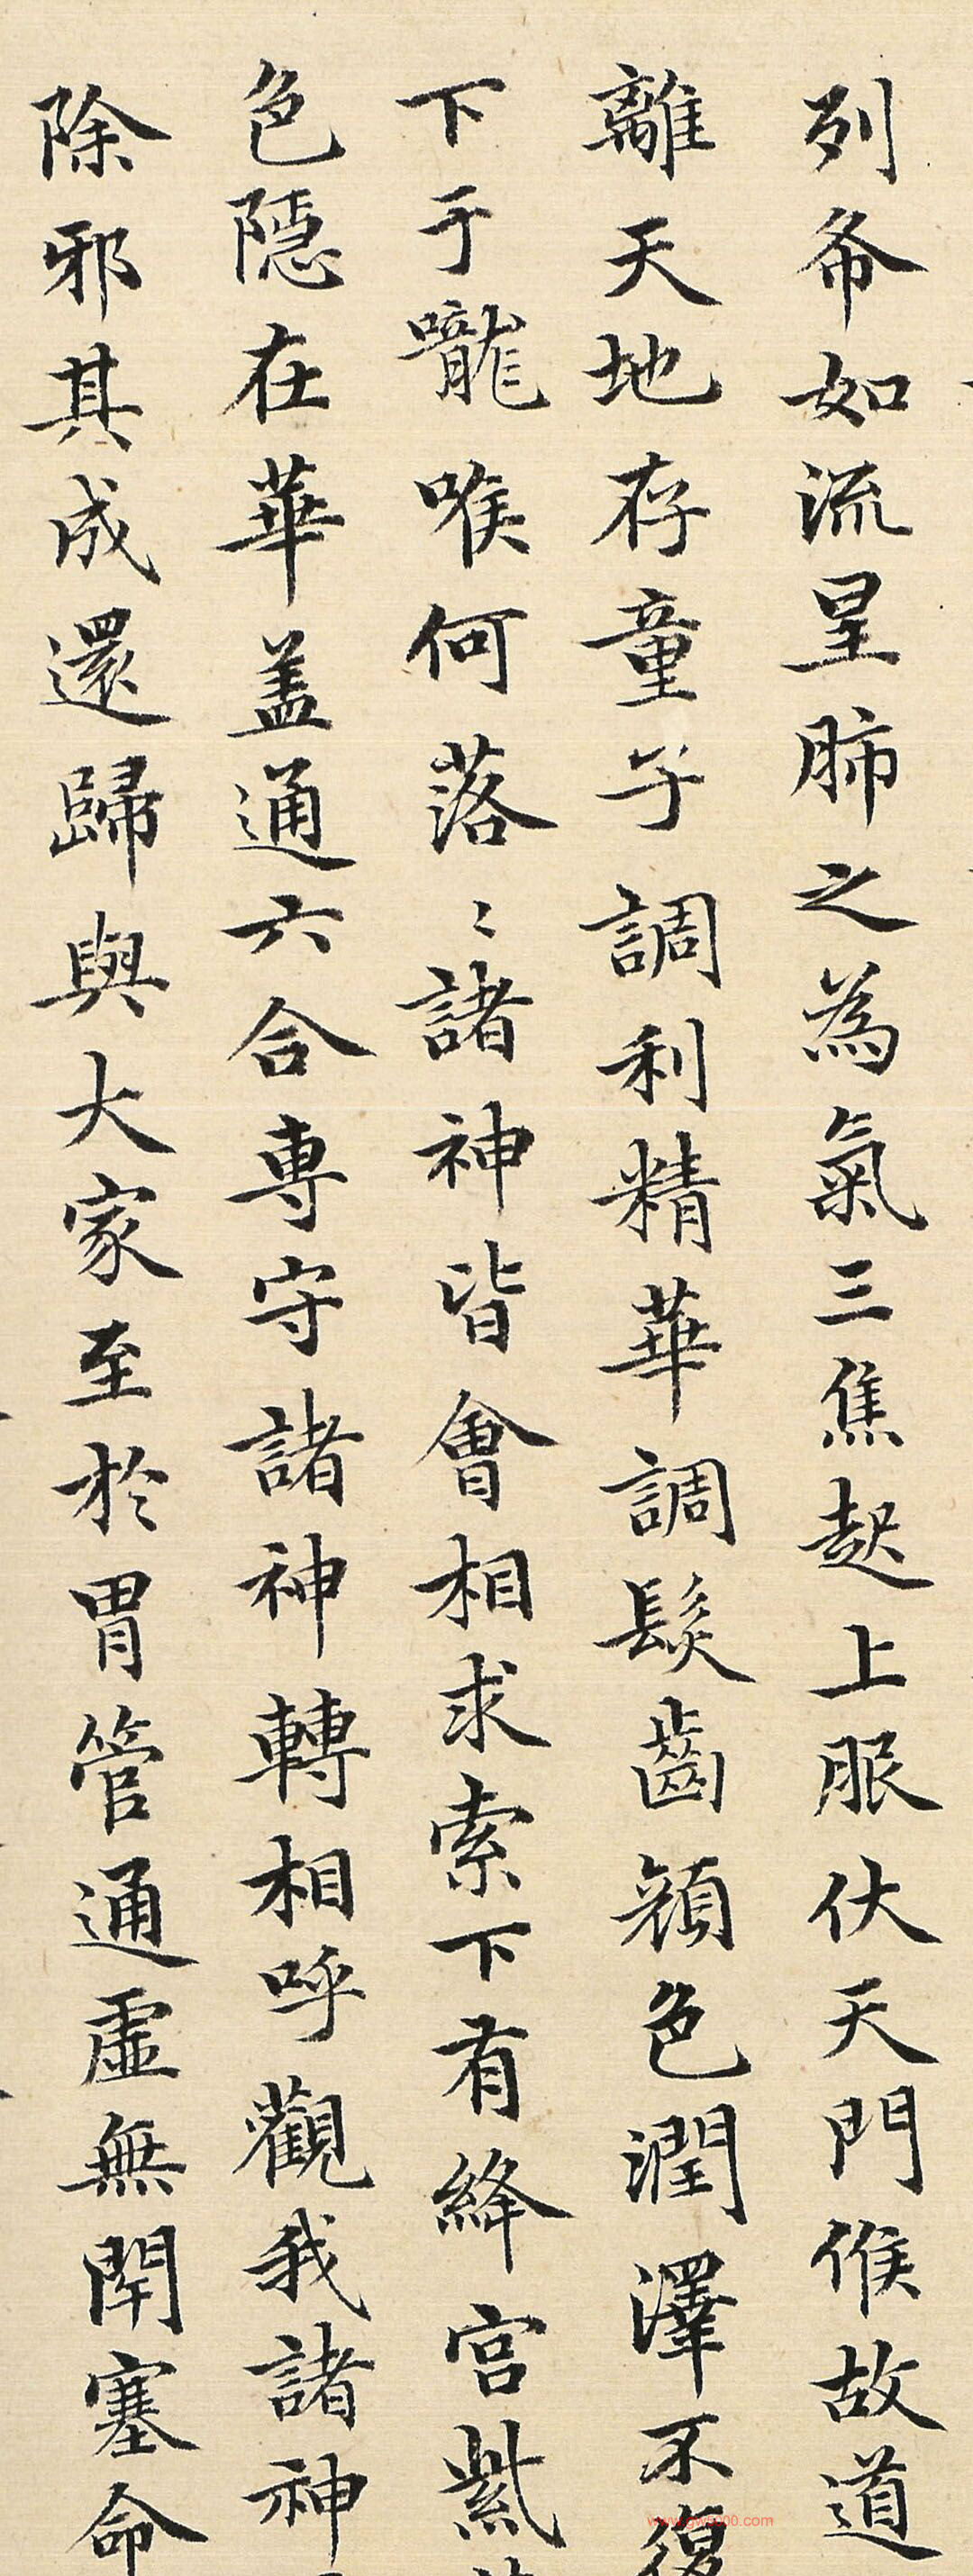 列布如流星肺之為氣三焦起上服伏天門候故道
離天地存童子調利精華調髮齒顏色潤澤不復
下于嚨喉何落〻諸神皆會相求索下有絳宮紫
色隱在華蓋通六合專守諸神轉相呼觀我諸神
除邪其成還歸與大家至於胃管通虛無閉塞命
www.gw5000.com